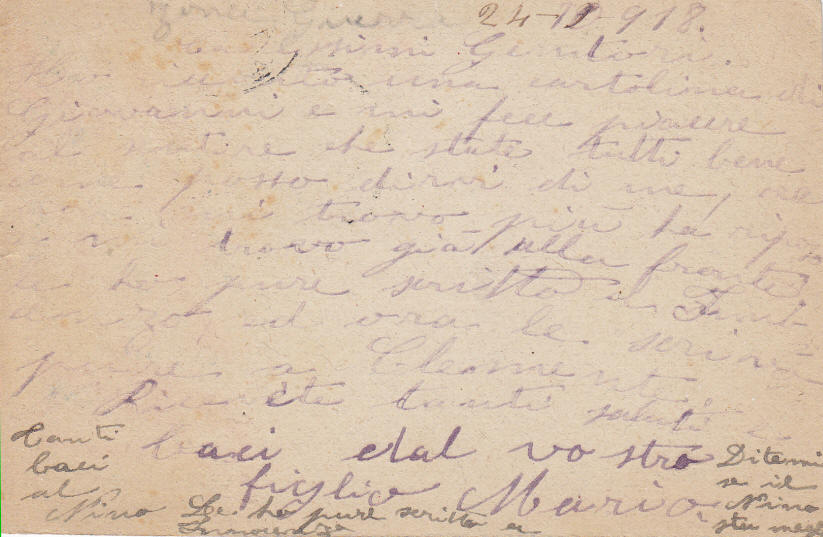 Zona Guerra 24-10-918.
Carissimi Genitori.
Ho ricevuto una cartolina di
Giovanni e mi fece piacere
al sentire che state tutti bene
come posso dirvi di me, ora
non mi trovo più ha ripos
e mi trovo già alla fronte
pure scritto a
ed ora le scrivo
pure a Clemente
Ricevete tanti saluti e
baci dal vostro
figlio Mario
Tanti
baci
al
Nino
Le ho pure scritto a
Innocenzo
Ditemi
se il
Nino
sta